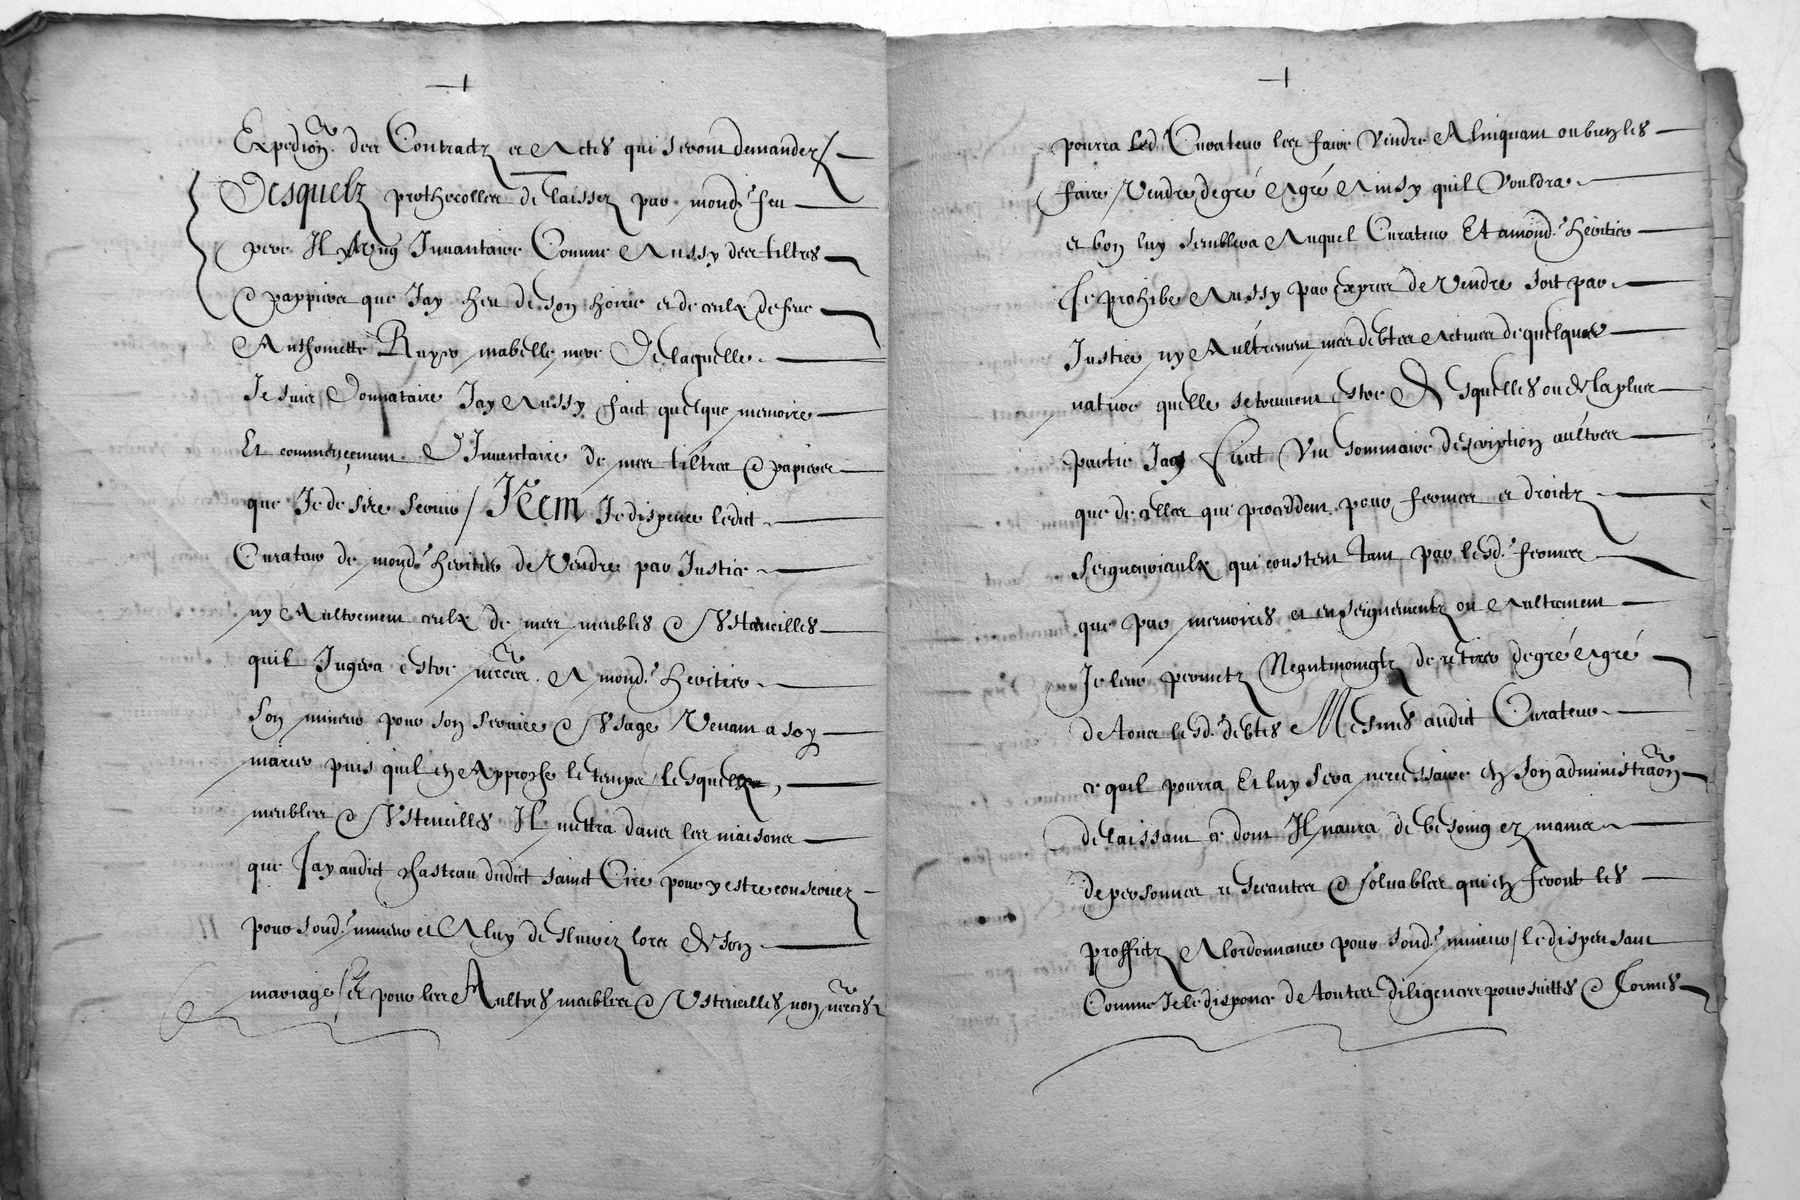 Expedion. des Contractz et Actes qui seront demandez /
Desquelz prothecolles delaissez par mond.t feu
pere Il y a ung Inuantaire Comme Aussy des tiltres
& pappiers que Jay heu de son hoirie et de ceulx de feue
Anthoinette mabelle mere De laquelle
Je suis Donnataire Jay Aussy faict quelque memoire
Et commencement D'Inuentaire de mes tiltres & papiers
que Je desire seruir / Item Je dispence ledict
Curateur de mond.t heritier de Vendre par Justice
ny Aultrement ceulx de mes meubles & Vstencilles
quil Jugera estre necres. A mond.t heritier
son mineur pour son seruice & Vsage Venant a soy
marier puis quil en Approche le temps / lesquelz
meubles & Vstencilles Il mettra dans les maisons
que Jay audict chasteau dudict sainct Cire pour y estre conseruez
pour sond.t mineur et A luy deliurez lors de son
mariage / Et pour les Aultres meubles & Vstencilles non necres
pourra led. Curateur les faire Vendre A linquant ou bien les
faire Vendre de gré A gré Ainsy quil Vouldra
et bon luy semblera Auquel Curateur Et a mond.t heritier
Je prohibe Aussy par expres de Vendre soit par
Justice ny Aultrement mes debtes actiues de quelque
nature quelle se treuuent estre Desquelles ou de la plus
partie Jay faict Vn sommaire description aultres
que de celles qui proceddent pour fermes et droictz
seigneuriaulx qui constent tant par lesd.t fermes
que par memoires et enseignementz ou Aultrement
Je leur permetz Neantmoingtz de retirer de gré A gré
de tous lesd. debtes Mesmes audict Curateur
ce quil pourra Et luy sera necessaire en son administraon
delaissant ce dont Il naura de besoing ez mains
de personnes reseantes & soluables qui en feront les
proffictz A lordonnance pour sond.t mineur / le dispensant
Comme Je le dispence de toutes diligences poursuittes & formes